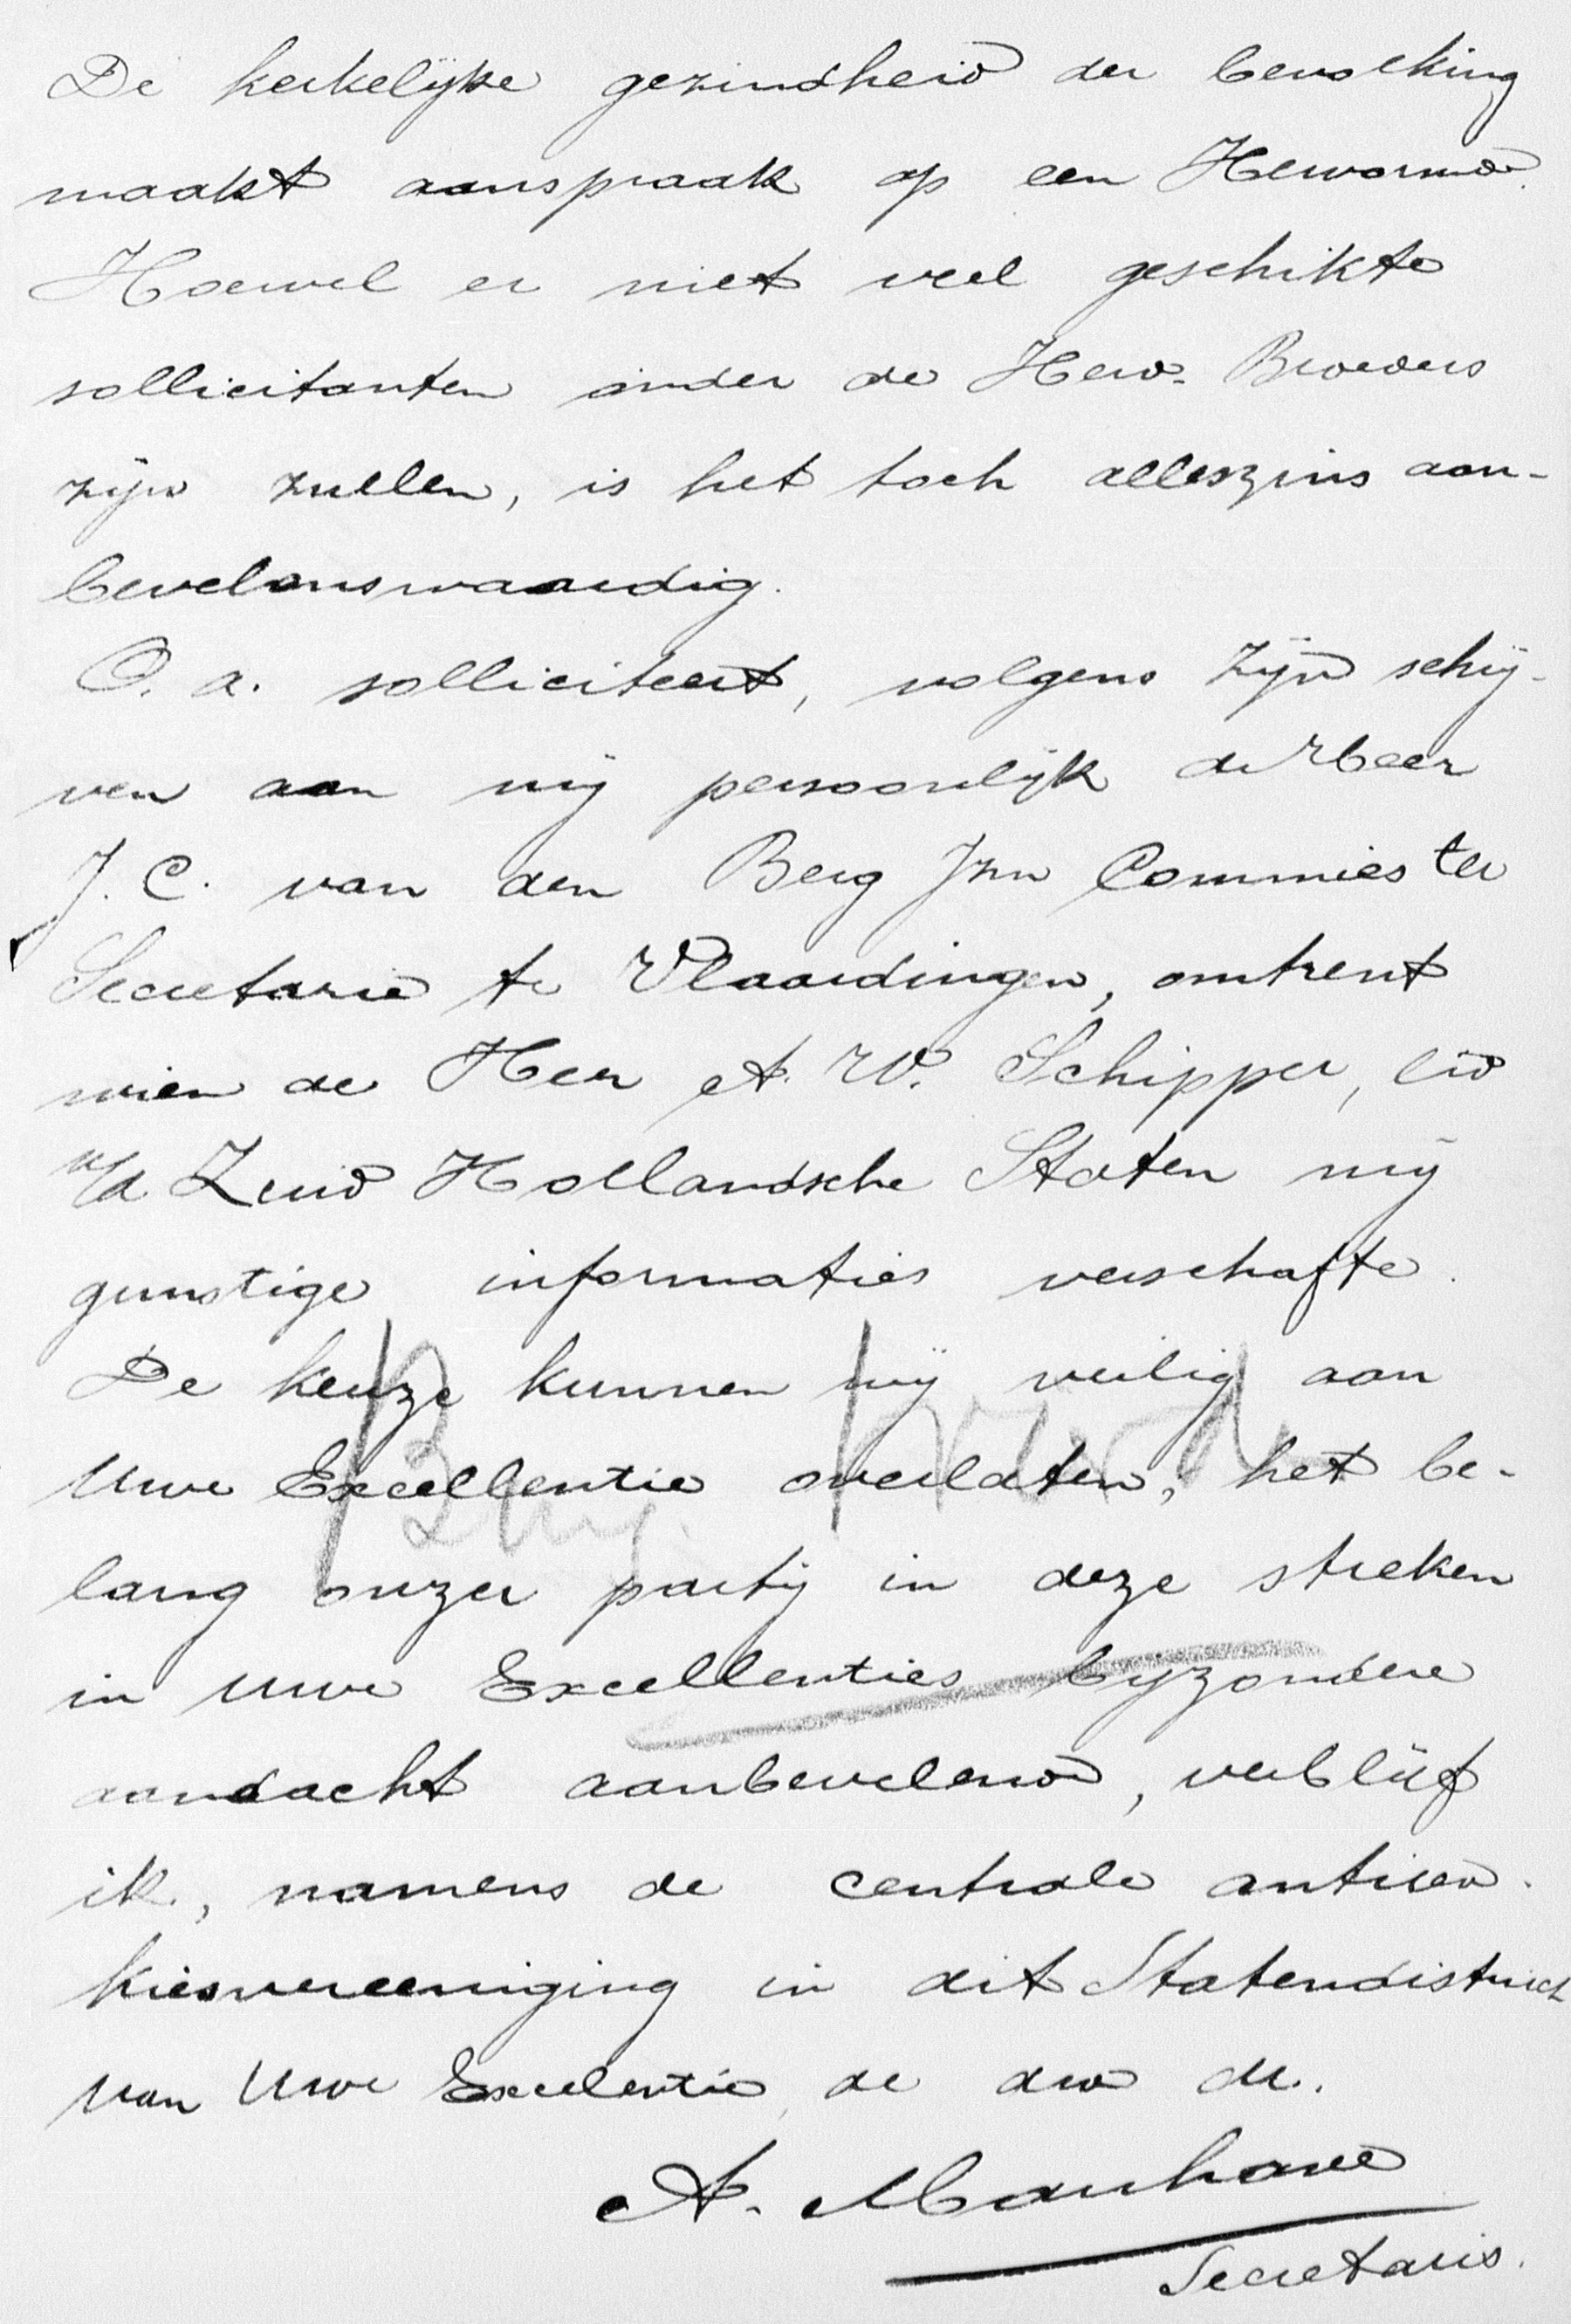 De kerkelijke gezindheid der bevolking
maakt aanspraak op een Hervormd.
Hoewel er niet veel geschikte
sollicitanten onder de Herv. Broeders
zijn zullen, is het toch alleszins aan-
bevelenswaardig.
O. a. solliciteert, volgens zijn schrij-
ven aan mij persoonlijk de Heer
J. C. van den Berg Jzn Commies ter
Secretarie te Vlaardingen, omtrent
wien de Heer A. W. Schipper, lid
v/d Zuid Hollandsche Staten mij
gunstige informaties verschafte.
De keuze kunnen wij veilig aan
Uwe Excellentie overlaten, het be-
lang onzer partij in deze streken
in Uwe Excellenties bijzondere
aandacht aanbevelend, verblijf
ik, namens de centrale antirev.
kiesvereeniging in dit Statendistrict
van Uwe Excelentie, de dw dr.
A.
Secretaris.